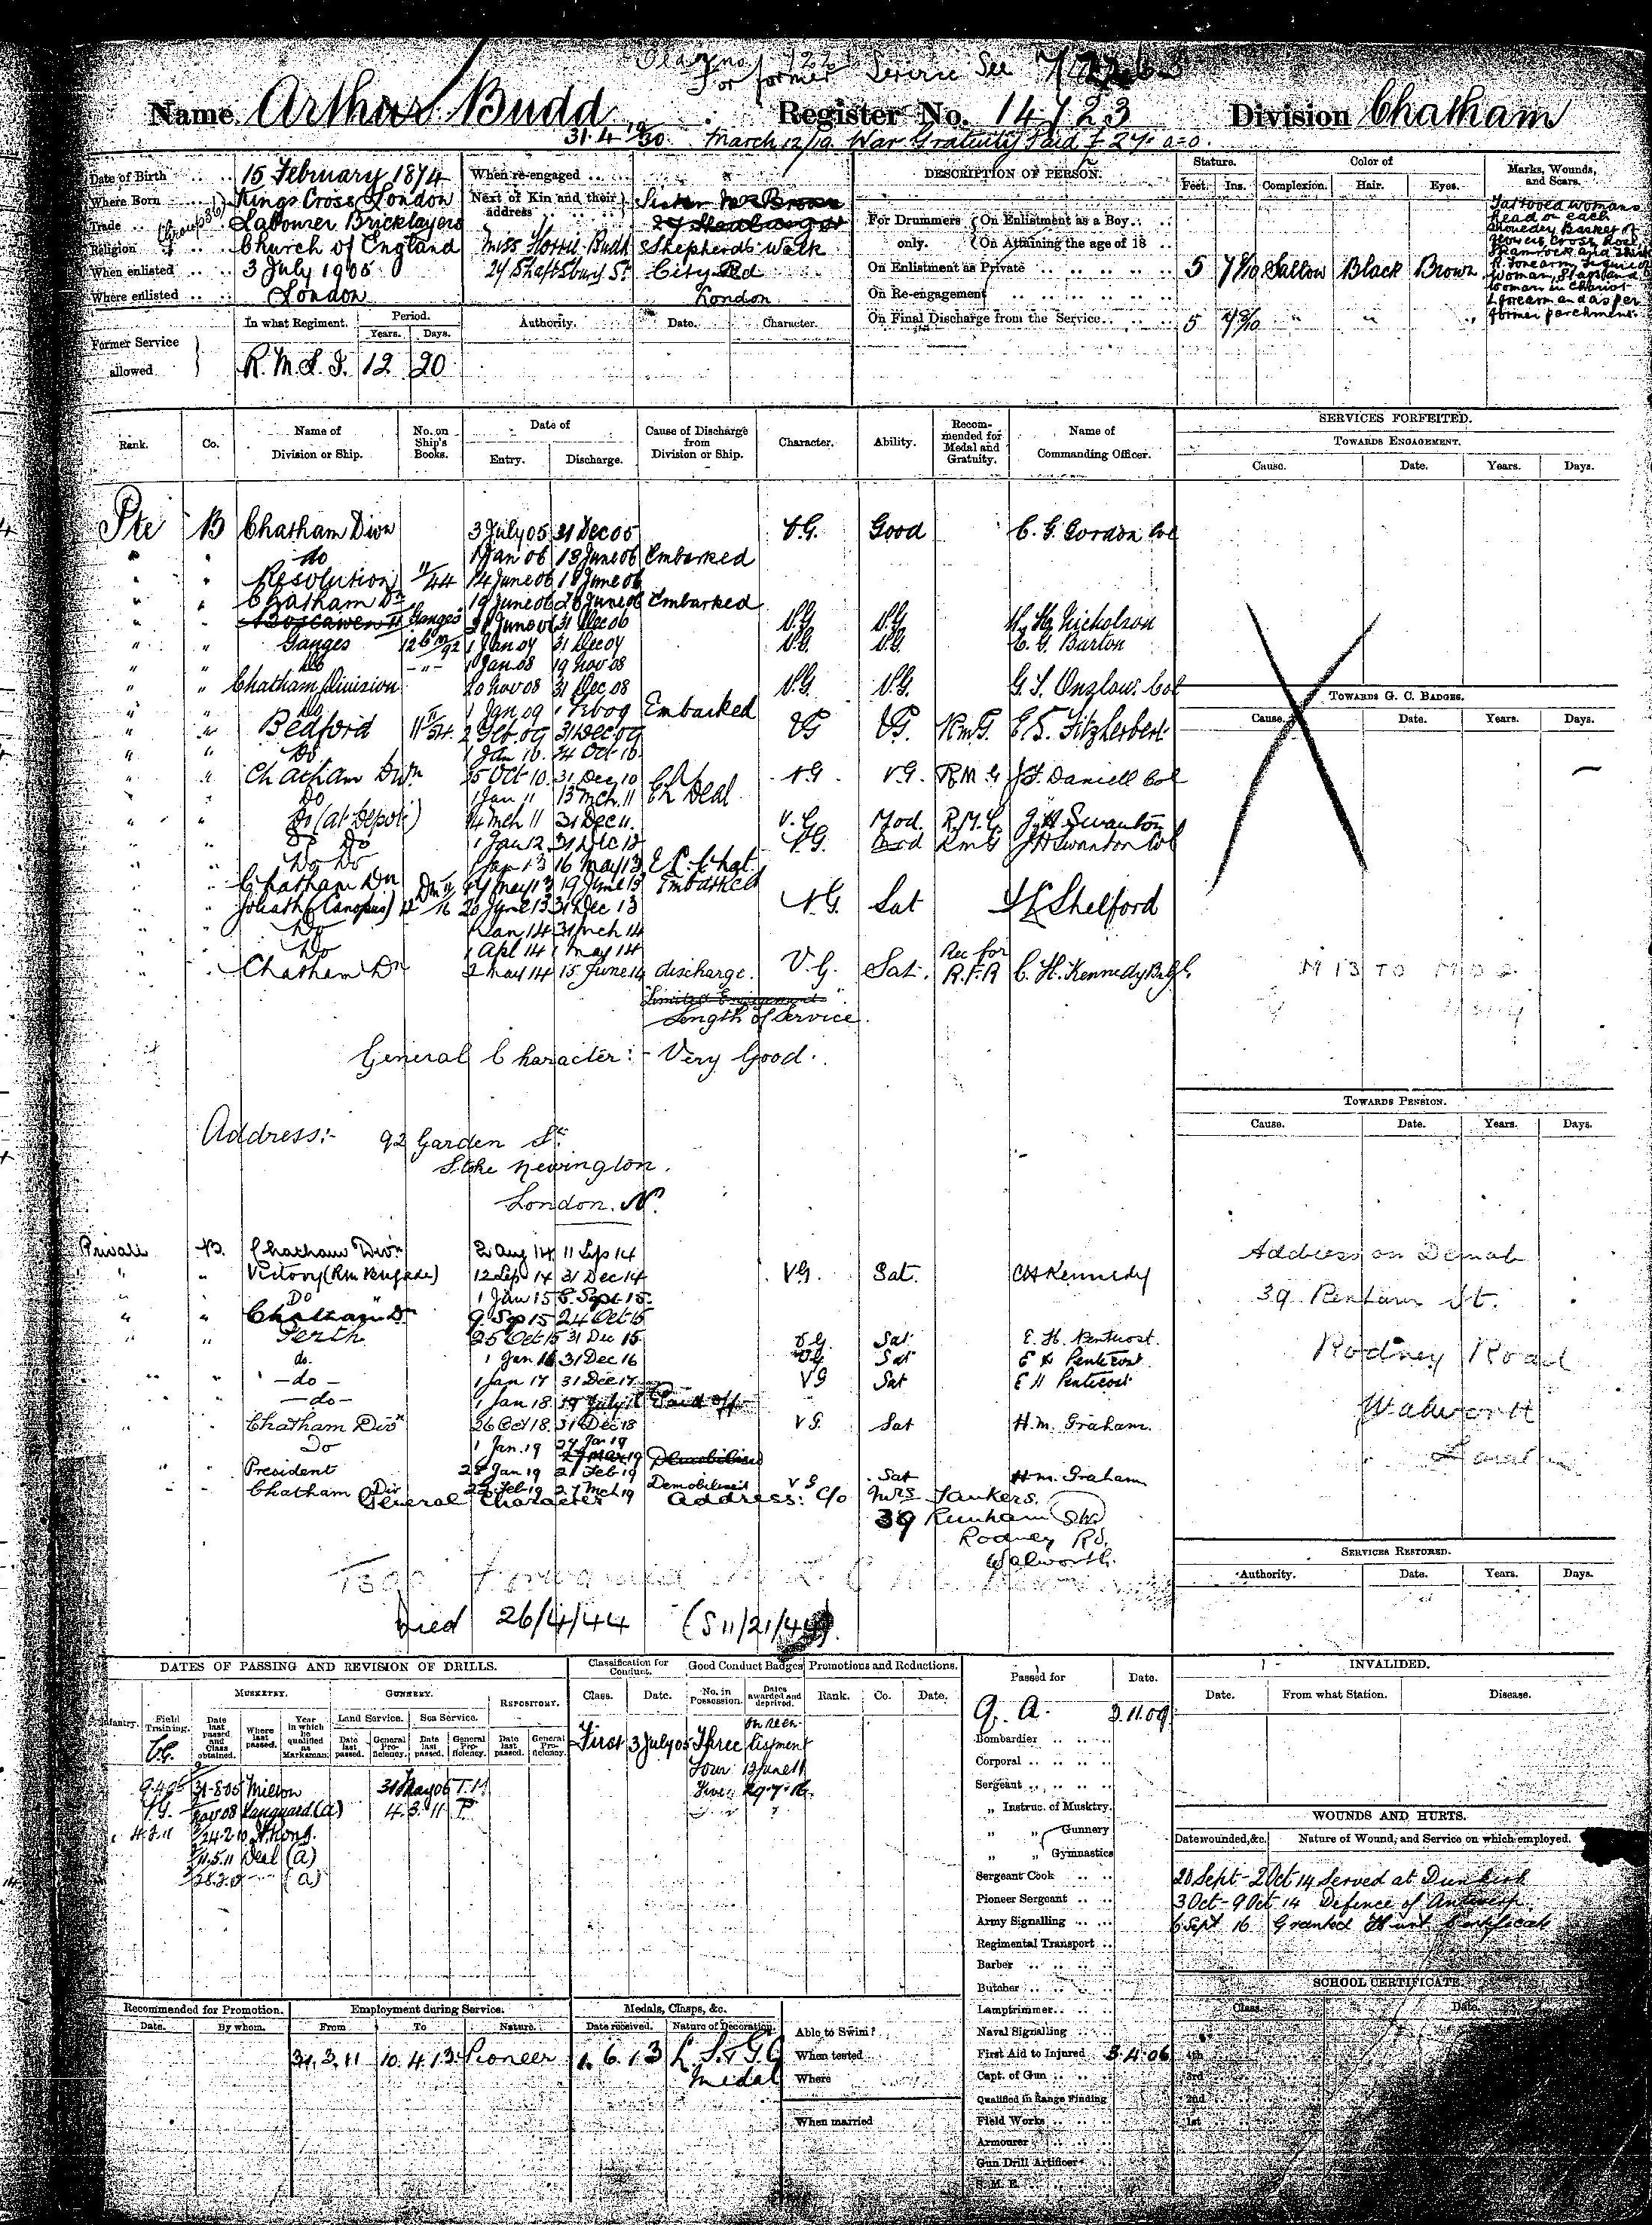 For former Service See
Name Arthur Budd Register No. 14723 Division Chatham
March 12/19 War Gratuity Paid
Date of Birth 15 February 1874 When re-engaged
Where Born Kings Cross London Next of Kin and their address Sister Mrs Brown
Trade Labourer Bricklayers
Religion Church of England Miss Florrie Budd Shepherds Walk
When enlisted 3 July 1905 24 Shaftsbury St City Rd
Where enlisted London London
DESCRIPTION OF PERSON.
Stature. Color of Marks, Wounds, and Scars.
Feet. Ins. Complexion. Hair. Eyes.
For Drummers only. On Enlistment as a Boy
On Attaining the age of 18
On Enlistment as Private 5 Sallow Black Brown
On Re-engagement
On Final Discharge from the Service 5 " " "
Tattooed womans
head on each
shoulder Basket of
flowers Cross Rose
Shamrock and
R. forearm
Woman, Flags and
Woman in Chariot
L forearm and as per
former parchment.
Former Service allowed In what Regiment. Period. Years. Days. Authority. Date. Character.
R.M.L.I. 12 20
Rank. Co. Name of Division or Ship. No. on Ship's Books. Date of Entry. Discharge. Cause of Discharge from Division or Ship. Character. Ability. Recommended for Medal and Gratuity. Name of Commanding Officer.
SERVICES FORFEITED.
TOWARDS ENGAGEMENT.
Cause. Date. Years. Days.
Pte B Chatham Divn 3 July 05 31 Dec 05 V.G. Good C. G. Gordon Col
" " do 1 Jan 06 13 June 06 Embarked
" " Resolution 11/44 14 June 06 18 June 06
" " Chatham Dn 19 June 06 20 June 06 Embarked
" " Boscawen II Ganges 21 June 06 31 Dec 06 V.G. V.G. H. H. Nicholson
" " Ganges 1 Jan 07 31 Dec 07 V.G. V.G. C. G. Barton
" " Do -"- 1 Jan 08 19 Nov 08
" " Chatham Division 20 Nov 08 31 Dec 08 V.G. V.G. G. T. Onslow. Col
" " Do 1 Jan 09 1 Feb 09 Embarked
" " Bedford 2 Feb. 09 31 Dec 09 VG VG. RMG. E. S. Fitzherbert
" " Do 1 Jan 10. 24 Oct 10.
" " Chatham Divn 25 Oct 10. 31 Dec 10 V.G. V.G. R.M.G J. F. Daniell Col
" " Do 1 Jan 11 13 Mch. 11 Ch Deal
" " Do (at Depot) 14 Mch 11 31 Dec 11. V.G. Mod. R.M.G. J. H. Swanton
" " Do Do 1 Jan 12 31 Dec 12 V.G. RMG J H Swanton Col
" " Do Do 1 Jan 13 16 May 13
" " Chatham Dn 17 May 13 19 June 13 Embarked
" " Goliath (Canopus) 20 June 13 31 Dec 13 V.G. Sat Shelford
" " Do 1 Jan 14 31 Mch 14
" " Do 1 Apl 14 1 May 14
" " Chatham Dn 2 May 14 15 June 14 discharge. V.G. Sat. Rec for R.F.R C. H. Kennedy
Limited Engagement
Length of Service.
TOWARDS G. C. BADGES.
Cause. Date. Years. Days.
General Character:- Very Good.
TOWARDS PENSION.
Cause. Date. Years. Days.
Address:- 92 Garden St.
Stoke Newington.
London. N.
Private B. Chatham Divn 2 Aug 14 11 Sep 14
" " Victory (RM Brigade) 12 Sep 14 31 Dec 14 VG. Sat. CH Kennedy
" " Do " 1 Jan 15 8 Sept 15
" " Chatham Dn 9 Sep 15 24 Oct 15
" " Perth 25 Oct 15 31 Dec 15 V.G. Sat. E. H. Pentecost.
do. 1 Jan 16 31 Dec 16 VG Sat E H Pentecost
" " -do- 1 Jan 17 31 Dec 17 VG Sat E H Pentecost
" " -do- 1 Jan 18 Paid off
" " Chatham Divn 26 Oct 18 31 Dec 18 VG. Sat H.M. Graham.
Do 1 Jan. 19 27 Jan 19
Demobilised
" " President 28 Jan 19 21 Feb 19
" " Chatham Div 22 Feb 19 27 Mch 19 Demobilised VG Sat H.M. Graham
General Character Address: c/o Mrs Jankers.
39
Rodney Rd,
Walworth.
Address on Demob
39 St.
Rodney Road
Walworth
London
SERVICES RESTORED.
Authority. Date. Years. Days.
Died 26/4/44 (S 11/21/44).
DATES OF PASSING AND REVISION OF DRILLS.
Infantry. Field Training. MUSKETRY. Date last passed and Class obtained. Where last passed. Year in which he qualified as Marksman. GUNNERY. Land Service. Sea Service. Date last passed. General Proficiency. Date last passed. General Proficiency. REPOSITORY. Date last passed. General Proficiency.
V.G.
31-8-05 Milton 31 May 06 T.M
V.G. Nov 08 Vanguard (a) 4.3.11 P
4.3.11 24.2.10 H.Kong.
11.5.11 Deal (a)
(a)
Classification for Conduct. Class. Date.
First 3 July 05
Good Conduct Badges No. in Possession. Dates awarded and deprived.
Three on re en listment
Four 13 June 11
Five
Promotions and Reductions. Rank. Co. Date.
Passed for Date.
Q. A. 3.11.09
Bombardier
Corporal
Sergeant
" Instruc. of Musktry.
" " Gunnery
" " Gymnastics
Sergeant Cook
Pioneer Sergeant
Army Signalling
Regimental Transport
Barber
Butcher
Lamptrimmer
Naval Signalling
First Aid to Injured 3.4.06
Capt. of Gun
Qualified in Range Finding
Field Works
Armourer
Gun Drill Artificer
S. M. E.
INVALIDED.
Date. From what Station. Disease.
WOUNDS AND HURTS.
Date wounded, &c. Nature of Wound, and Service on which employed.
20 Sept - 2 Oct 14 Served at Dunkirk
3 Oct - 9 Oct 14 Defence of Antwerp
6 Sept 16 Granted Hurt Certificate
SCHOOL CERTIFICATE
Class. Date.
4th
3rd
2nd
1st
Recommended for Promotion. Date. By whom.
Employment during Service. From To Nature.
31.3.11 10.4.13. Pioneer
Medals, Clasps, &c. Date received. Nature of Decoration.
1.6.13 L.S.&G.C Medal
Able to Swim?
When tested
Where
When married